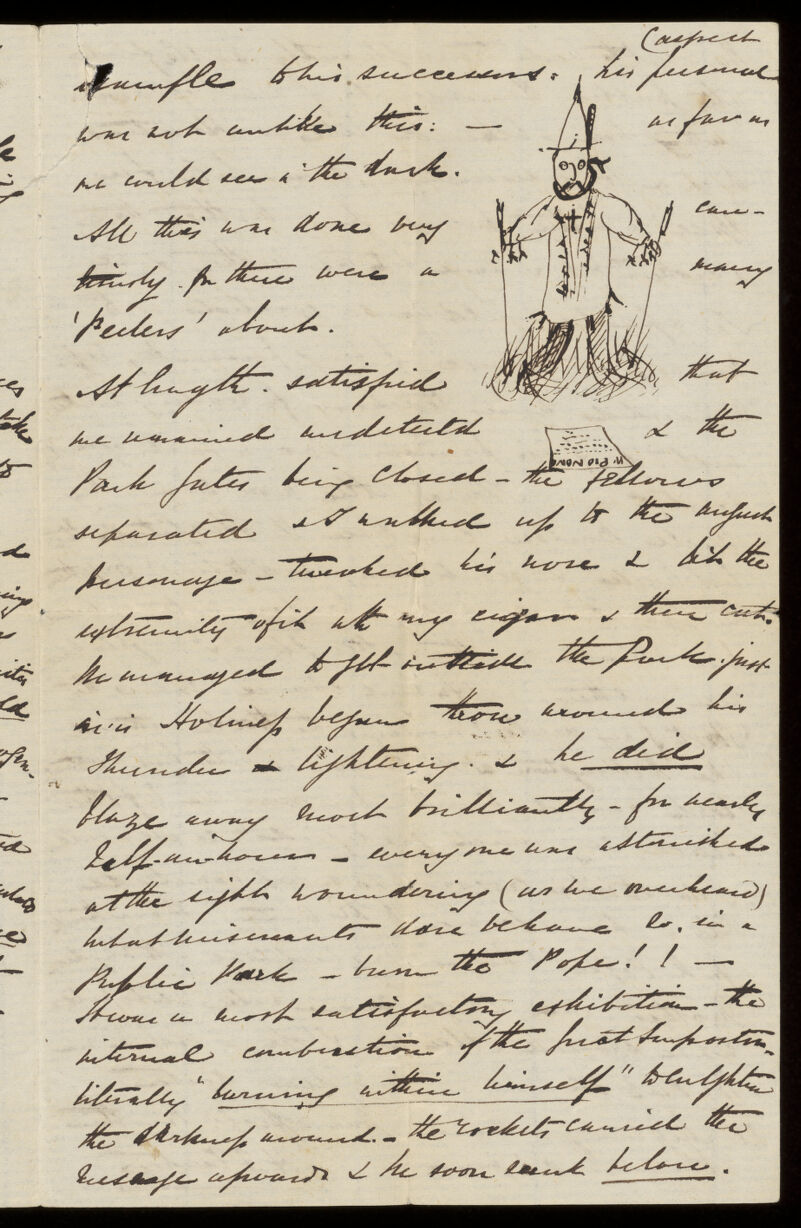 (aspect
example to his successors: his personal
was not unlike this: — as far as
we could see in the dark.
All this was done very cau-
tiously for there were a many
'Peelers' about.
At length satisfied that
we remained undetected & the
W PIO NONO
Park gates being closed – the fellows
separated & I walked up to the august
personage – tweaked his nose & lit the
extremity of it with my cigar & then cut.
We managed to get outside the Park just
as his Holiness began throw around his
Thunder & lightening. & he did
blaze away most brilliantly – for nearly
half-an-hour – every one was astonished
at the sight woundering (as we overheard)
what miscreants dare behave so, in a
Public Park – burn the Pope!! —
It was a most satisfactory exhibition – the
internal combustion of the great Impostor,
literally "burning within himself" to enlighten
the darkness around. – the rockets carried the
message upwards & he soon sunk below.